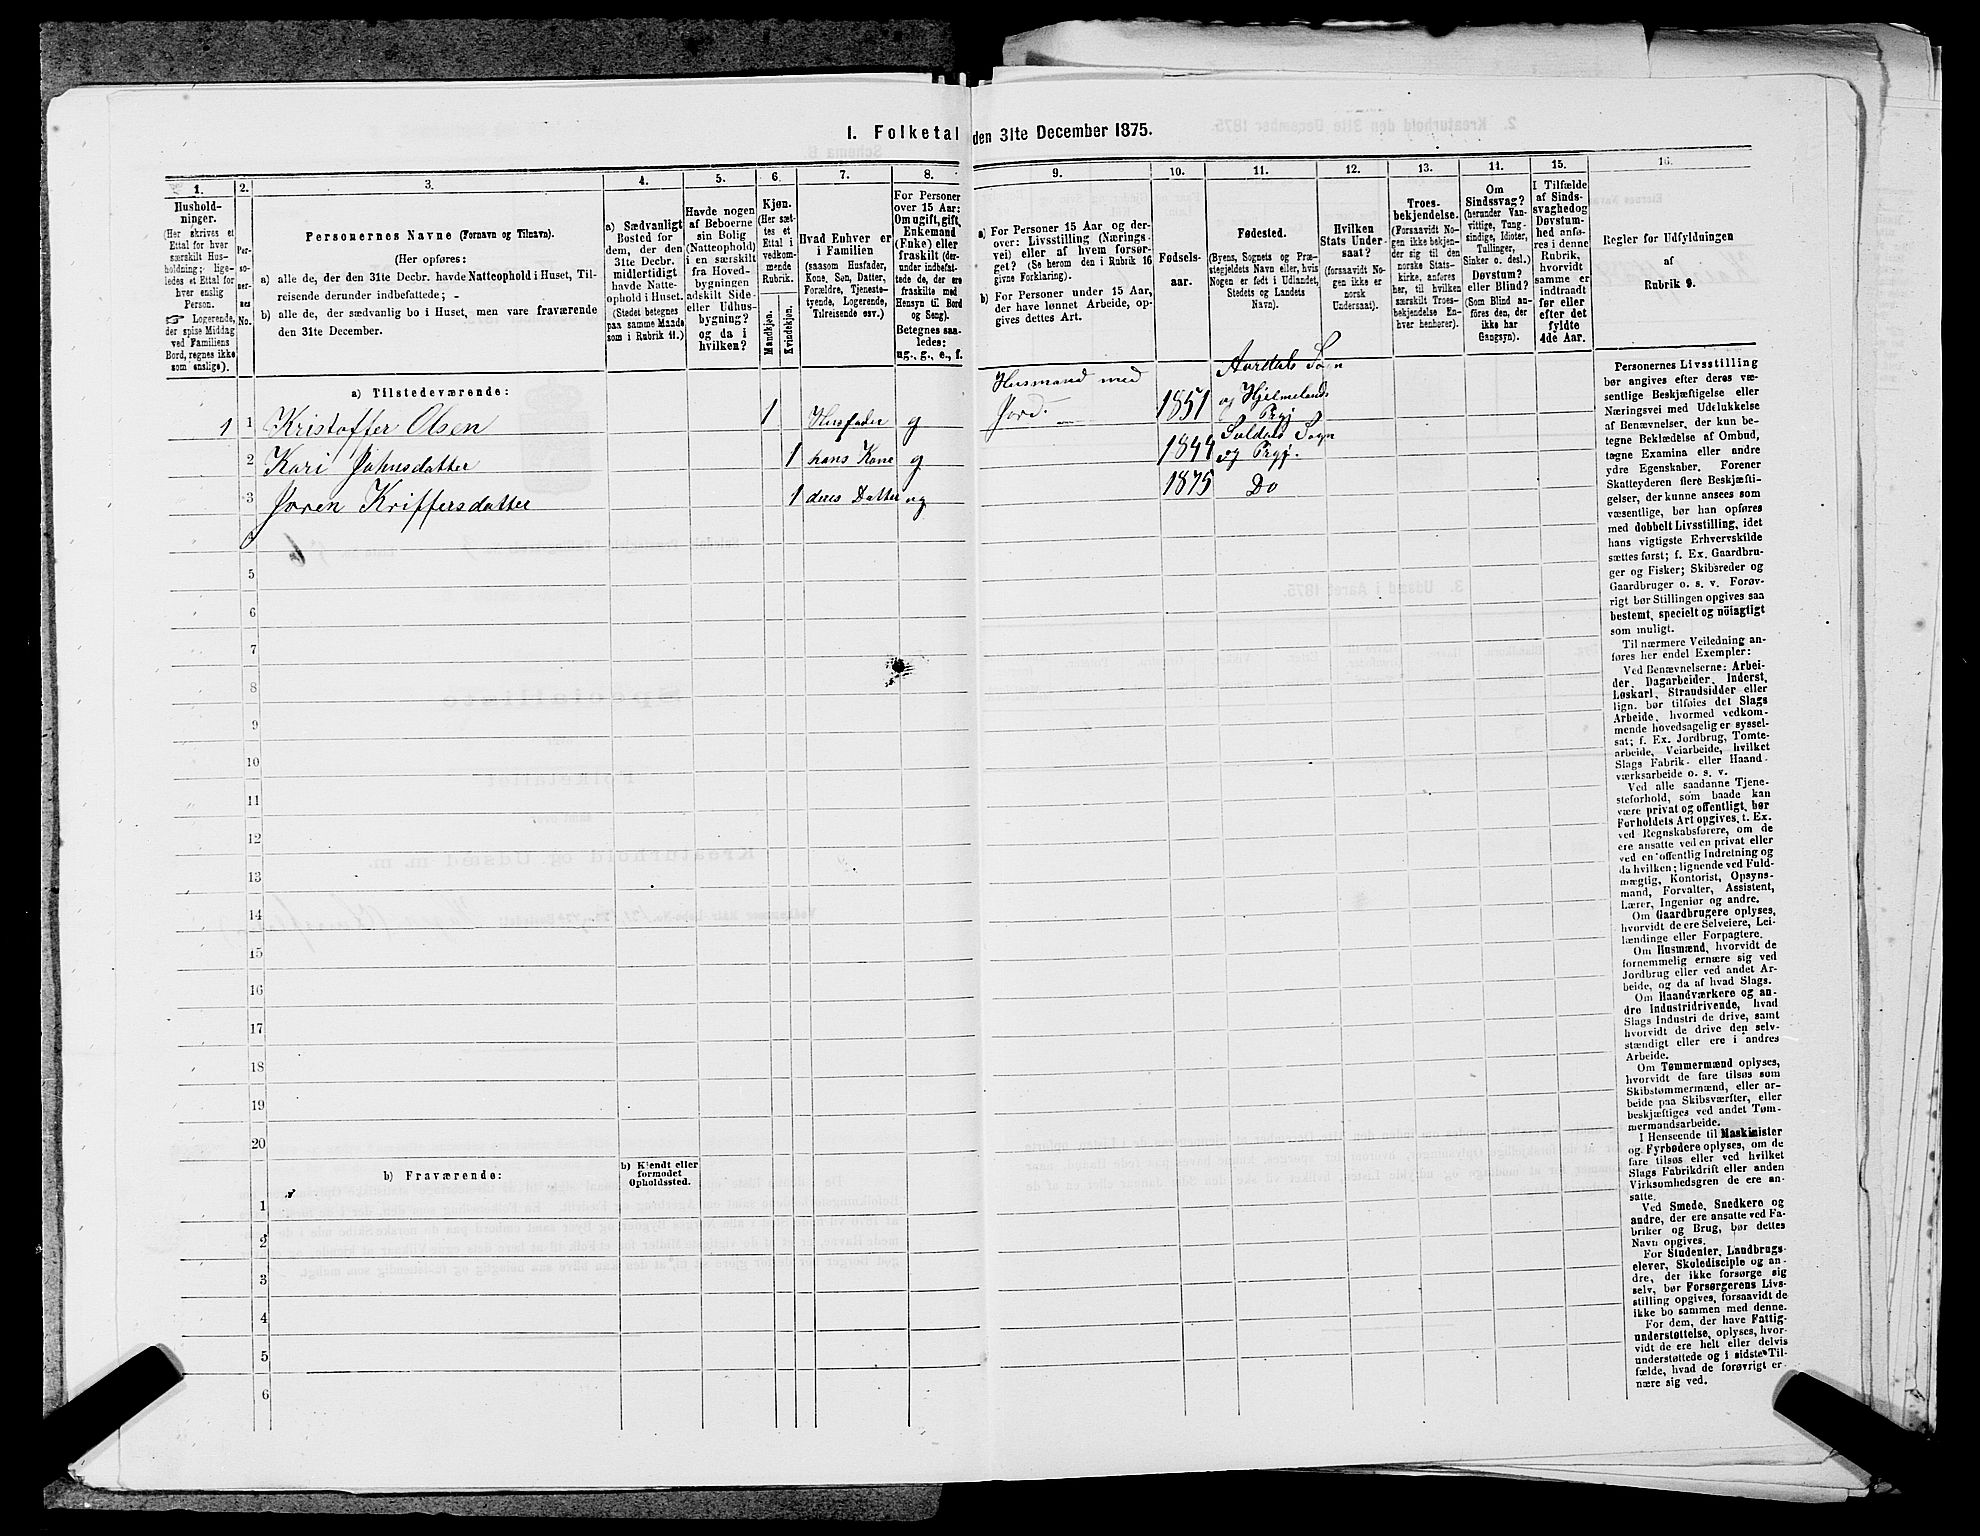 I. Folketal den 31te December 1875.
1.
2.
3.
4.
5.
6.
7.
8.
9.
10.
11.
12.
13.
11.
15.
16.
Hushold-
ninger.
(Her skrives et
Ettal for hver
særskilt Hus-
holdning; lige-
ledes et Ettal for
hver enslig
Person.
☞ Logerende,
der spise Middag
ved Familiens
Bord, regnes ikke
som enslige).
Per-
so-
ner-
nes
No.
Personernes Navne (Fornavn og Tilnavn).
(Her opføres:
a) alle de, der den 31te Decbr. havde Natteophold i Huset, Til-
reisende derunder indbefattede;
b) alle de, der sædvanlig bo i Huset, men vare fraværende
den 31te December.
a) Sædvanligt
Bosted for
dem, der den
31te Decbr.
midlertidigt
havde Natte-
ophold i Huset.
(Stedet betegnes
paa samme Maade
som i Rubrik 11.)
Havde nogen
af Beboerne
sin Bolig
(Natteophold)
i en særskilt
fra Hoved-
bygningen
adskilt Side-
eller Udhus-
bygning?
og da i
hvilken?
Kjøn.
(Her sæt-
tes et
Ettal i
vedkom-
mende
Rubrik.
Mandkjøn.
Kvindekjøn.
Hvad Enhver er
i Familien
(saasom Husfader,
Kone, Søn, Datter,
Forældre, Tjeneste-
tyende, Logerende,
Tilreisende osv.)
For Personer
over 15 Aar:
Om ugift, gift,
Enkemand
(Enke) eller
fraskilt (der-
under indbefat-
tede de, der ere
fraskilte med
Hensyn til Bord
og Seng).
Betegnes saa-
ledes:
ug., g., e., f.
a) For Personer 15 Aar og der-
over: Livsstilling (Nærings-
vei) eller af hvem forsør-
get? (Se herom den i Rubrik 16
givne Forklaring).
b) For Personer under 15 Aar,
der have lønnet Arbeide, op-
gives dettes Art.
Fødsels-
aar.
Fødested.
(Byens, Sognets og Præ-
stegjeldets Navn eller, hvis
Nogen er født i Udlandet,
Stedets og Landets
Navn).
Hvilken
Stats Under-
saat?
(forsaavidt No-
gen ikke er
norsk
Undersaat).
Troes-
bekjendelse.
(Forsaavidt No-
gen ikke bekjen-
der sig til den
norske Stats-
kirke, anføres
her, til hvilken
særskilt Troes-
bekjendelse En-
hver henhører).
Om
Sindssvag?
(herunder Van-
vittige, Tung-
sindige, Idioter,
Tullinger,
Sinker o. desl.)
Døvstum?
eller Blind?
(Som Blind an-
føres den, der
ikke har
Gangsyn).
I Tilfælde
af Sinds-
svaghed og
Døvstum-
hed anfø-
res i denne
Rubrik,
hvorvidt
samme er
indtraadt
før eller
efter det
fyldte
4de Aar.
Regler for Udfyldningen
af
Rubrik 9.
a) Tilstedeværende:
1 1 Kristoffer Olsen 1 Husfader g Husmand med Jord. 1851 Aardals Sogn og Hjelmelands Prgj
2 Kari Johnsdatter 1 hans Kone g 1844 Suldals Sogn og Prgj.
3 Joren Kriffersdatter 1 deres Datter ug 1875 Do
4
5
6
7
8
9
10
11
12
13
14
15
16
17
18
19
20
b) Fraværende:
b) Kjendt eller
formodet
Opholdssted.
1
2
3
4
5
6
Personernes Livsstilling
bør angives efter deres væ-
sentlige Beskjæftigelse eller
Næringsvei med Udelukkelse
af Benævnelser, der kun be-
tegne Beklædelse af Ombud,
tagne Examina eller andre
ydre Egenskaber. Forener
Skatteyderen flere Beskjæfti-
gelser, der kunne ansees som
væsentlige, bør han opføres
med dobbelt Livsstilling, idet
hans vigtigste Erhvervskilde
sættes først; f. Ex. Gaardbru-
ger og Fisker; Skibsreder og
Gaardbruger o. s. v. Forøv-
rigt bør Stillingen opgives saa
bestemt, specielt og nöiagtigt
som muligt.
Til nærmere Veiledning an-
føres her endel Exempler:
Ved Benævnelserne: Arbei-
der, Dagarbeider, Inderst,
Løskarl, Strandsidder eller
lign. bør tilføies det Slags
Arbeide, hvormed vedkom-
mende hovedsagelig er syssel-
sat; f. Ex. Jordbrug, Tomte-
arbeide, Veiarbeide, hvilket
Slags Fabrik- eller Haand-
værksarbeide o. s. v.
Ved alle saadanne Tjene-
steforhold, som baade kan
være privat og offentligt, bør
Forholdets Art opgives, t. Ex.
ved Regnskabsførere, om de
ere ansatte ved en privat eller
ved en offentlig Indretning og
da hvilken; lignende ved Fuld-
mægtig, Kontorist, Opsyns-
mand, Forvalter, Assistent,
Lærer, Ingeniør og andre.
Om Gaardbrugere oplyses,
hvorvidt de ere Selveiere, Lei-
lændinge eller Forpagtere.
Om Husmænd, hvorvidt de
fornemmelig ernære sig ved
Jordbrug eller ved andet Ar-
beide, og da af hvad Slags.
Om Haandværkere og an-
dre Industridrivende, hvad
Slags Industri de drive, samt
hvorvidt de drive den selv-
stændigt eller ere i andres
Arbeide.
Om Tømmermænd oplyses,
hvorvidt de fare tilsøs som
Skibstømmermænd, eller ar-
beide paa Skibsværfter, eller
beskjæftiges ved andet Tøm-
mermandsarbeide.
I Henseende til Maskinister
og Fyrbødere oplyses, om de
fare tilsøs eller ved hvilket
Slags Fabrikdrift eller anden
Virksomhedsgren de ere an-
satte.
Ved Smede, Snedkere og
andre, der ere ansatte ved Fa-
briker og Brug, bør dettes
Navn opgives.
For Studenter, Landbrugs-
elever, Skoledisciple og an-
dre, der ikke forsørge sig
selv, bør Forsørgerens Livs-
stilling opgives, forsaavidt de
ikke bo sammen med denne.
For dem, der have Fattig-
understøttelse, oplyses, hvor-
vidt de ere helt eller delvis
understøttede og i sidste Til-
fælde, hvad de forøvrigt er-
nære sig ved.